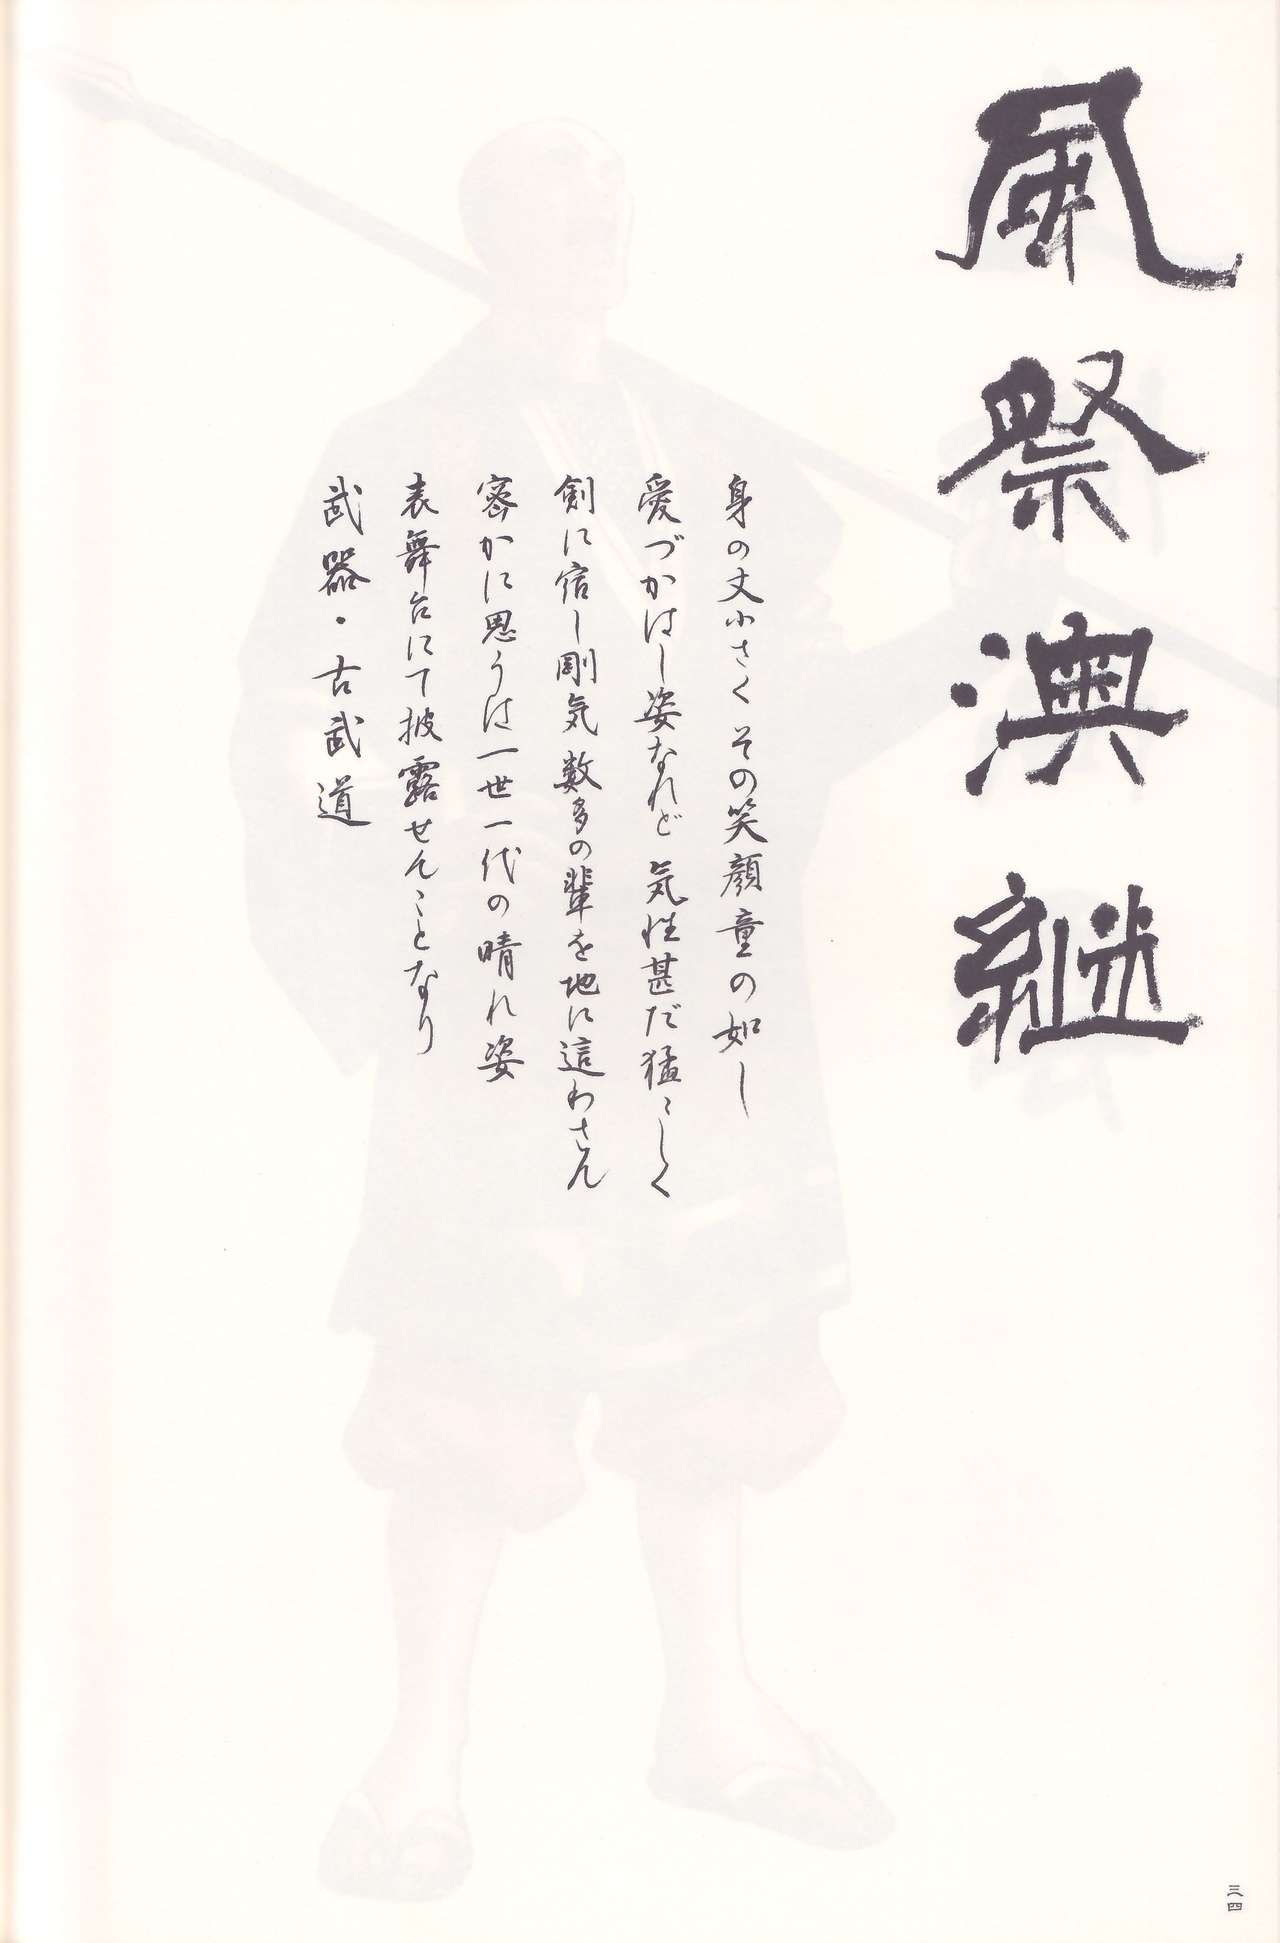 風祭澳継
身の丈小さく その笑顔童の如し
愛づかはし姿なれど 気性甚だ猛々しく
剣に宿し剛気 数多の輩を地に這わさん
密かに思うは一世一代の晴れ姿
表舞台にて披露せんことなり
武器・古武道
三四